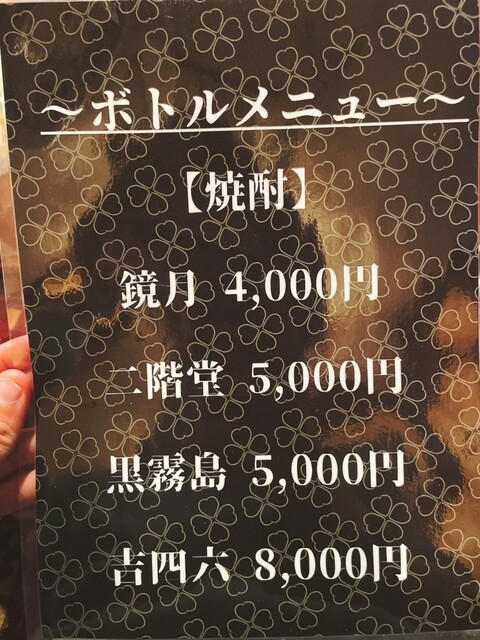 ～ボトルメニュー～
【焼酎】
鏡月 4,000円
二階堂 5,000円
黒霧島 5,000円
吉四六 8,000円